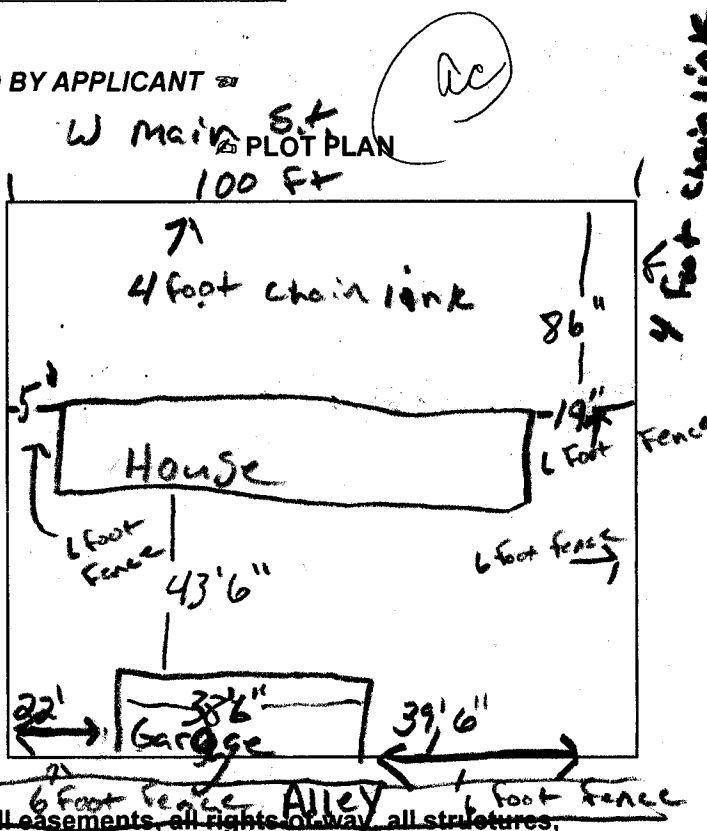 BY APPLICANT
ac
W Main St.
PLOT PLAN
100 Ft
4 foot chain link
4 foot chain link
86"
5'
19"
6 Foot Fence
House
6 foot
Fence
6 foot fence
43'6"
22'
38'6"
39'6"
Garage
6 Foot Fence
Alley
6 foot fence
all easements, all rights-of-way, all structures,